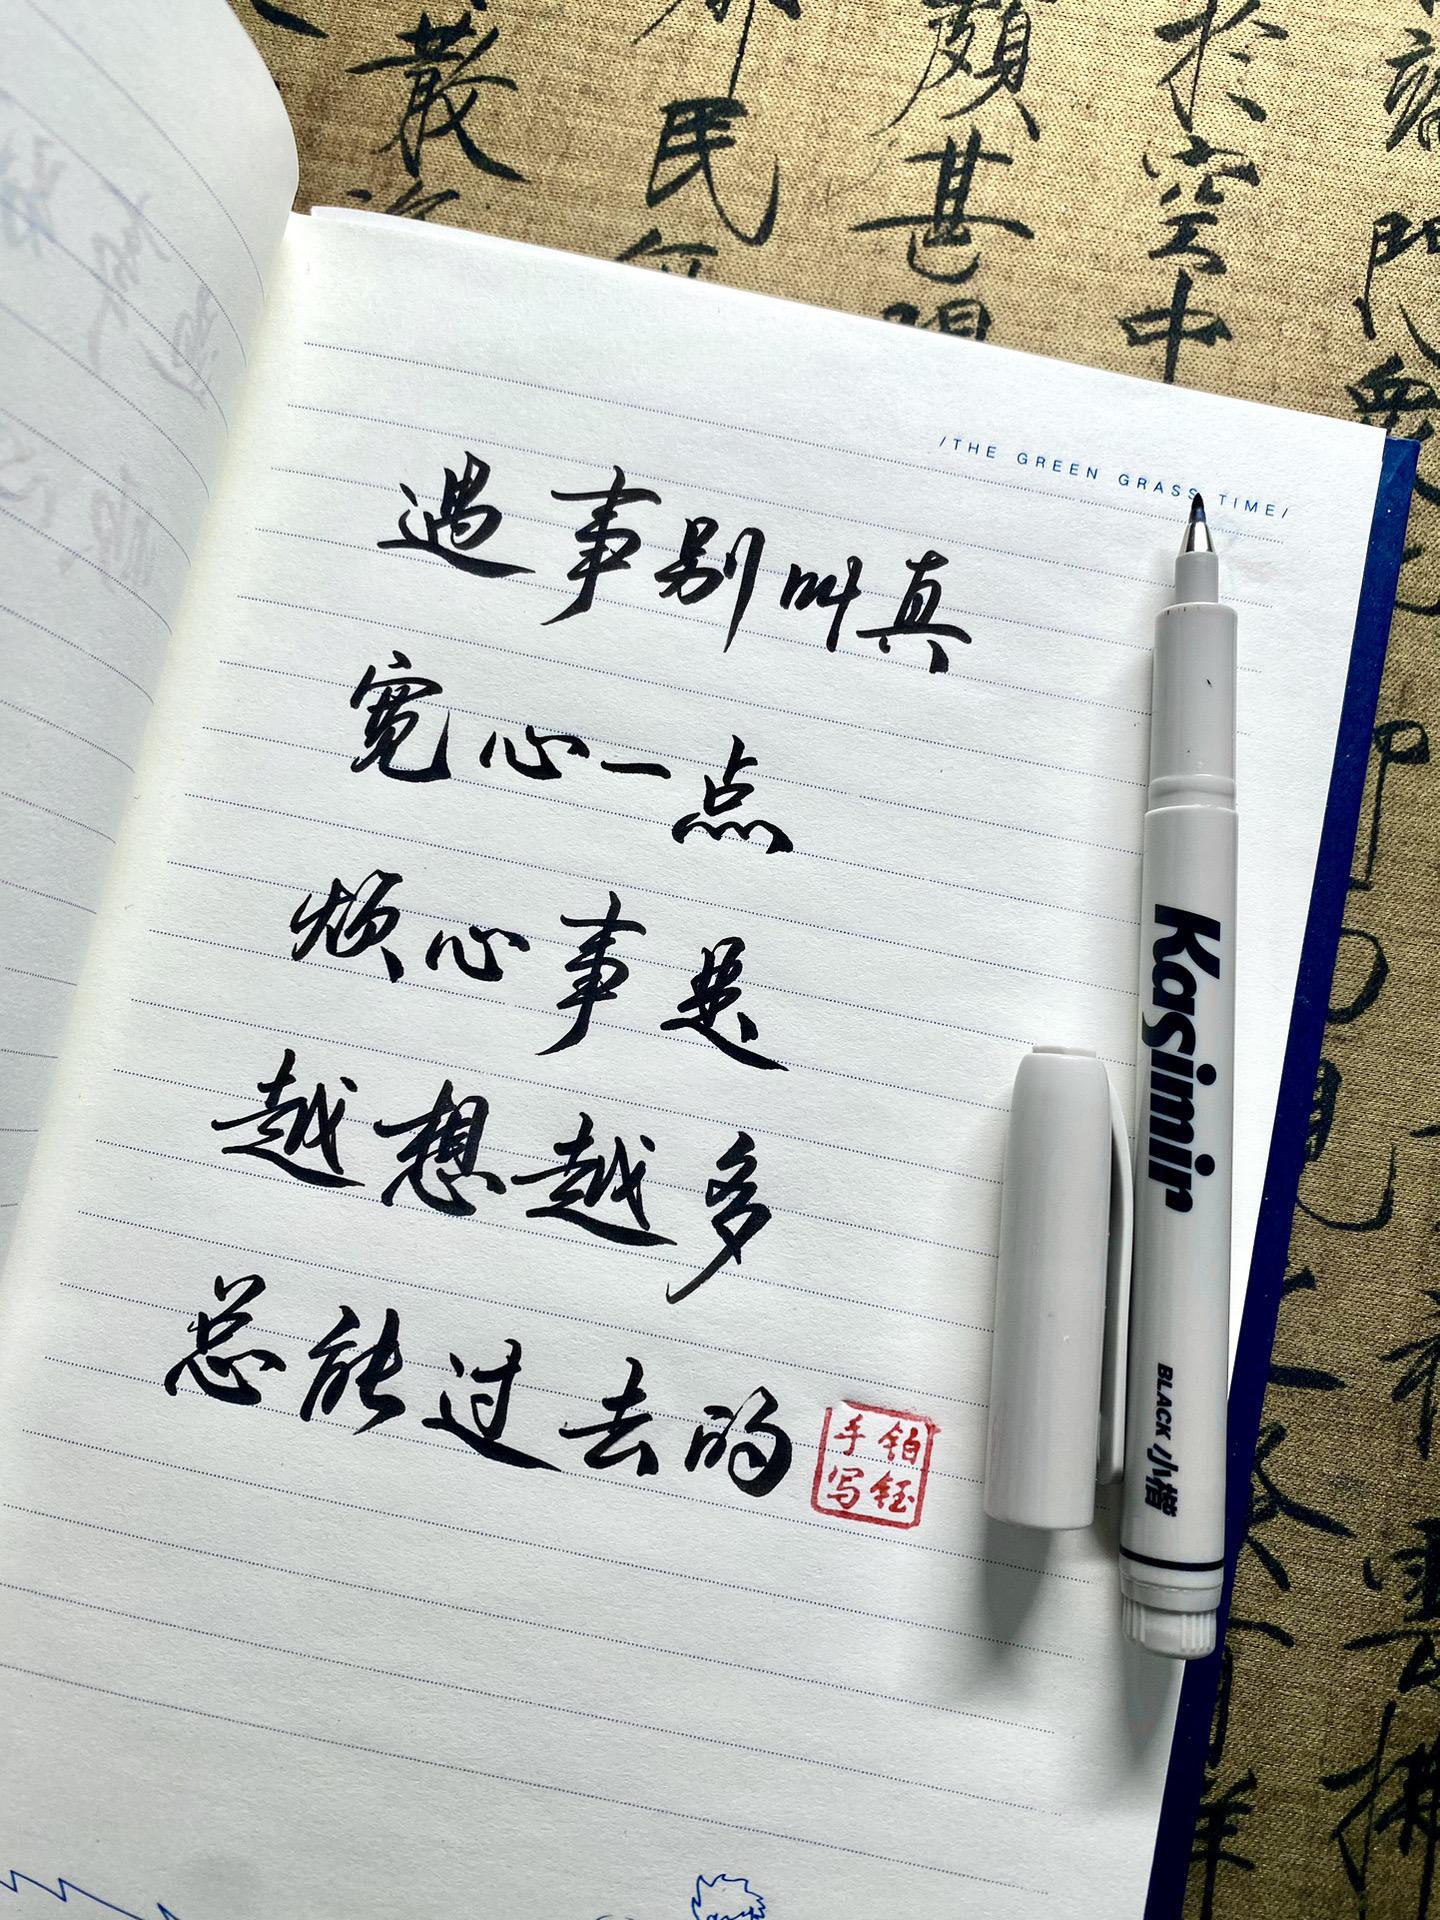 /THE GREEN GRASS TIME/
遇事别叫真
宽心一点
烦心事是
越想越多
总能过去的
铂钰
手写
Kasimir
BLACK 小楷
於空中
颜甚
民